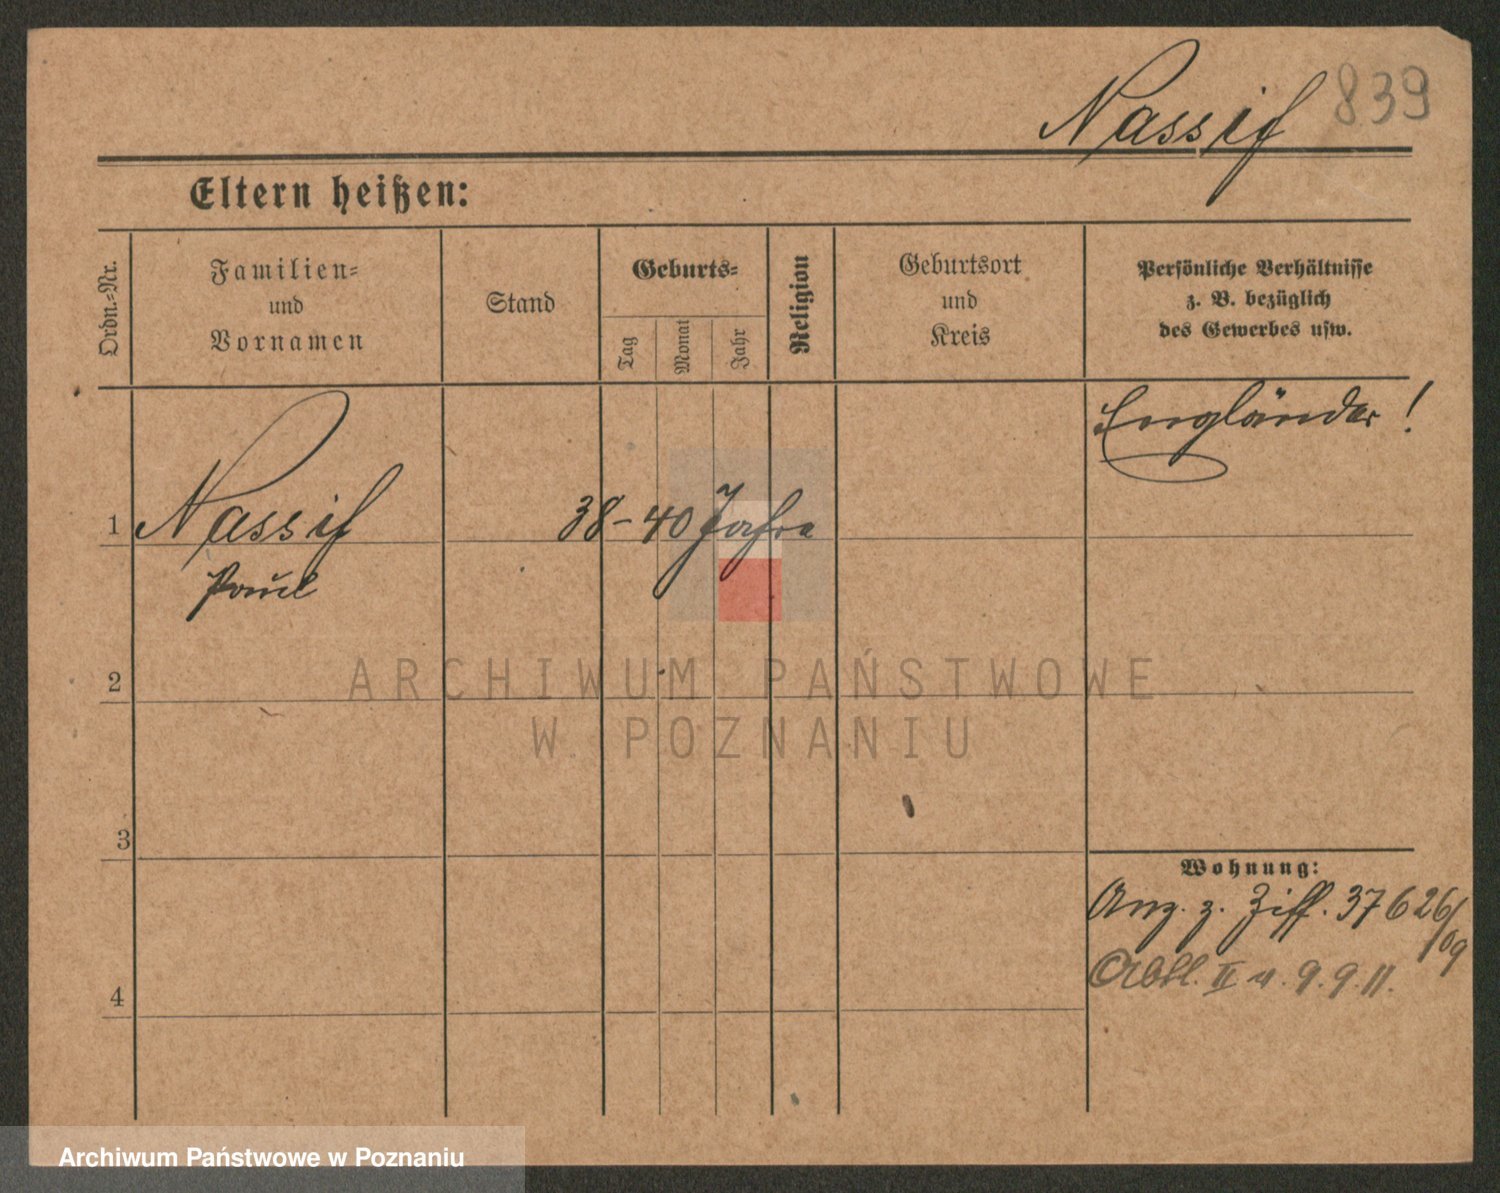 Nassif 839
Eltern heißen:
Ordn.-Nr.
Familien-
und
Vornamen
Stand
Geburts-
Tag
Monat
Jahr
Religion
Geburtsort
und
Kreis
Persönliche Verhältnisse
z. B. bezüglich
des Gewerbes usw.
Engländer!
1 Nassif 38-40 Jahre
Paul
2
ARCHIWUM PAŃSTWOWE
W POZNANIU
3
Wohnung:
Anz. z. Ziff. 37626/09
II v. 9.9.11.
4
Archiwum Państwowe w Poznaniu